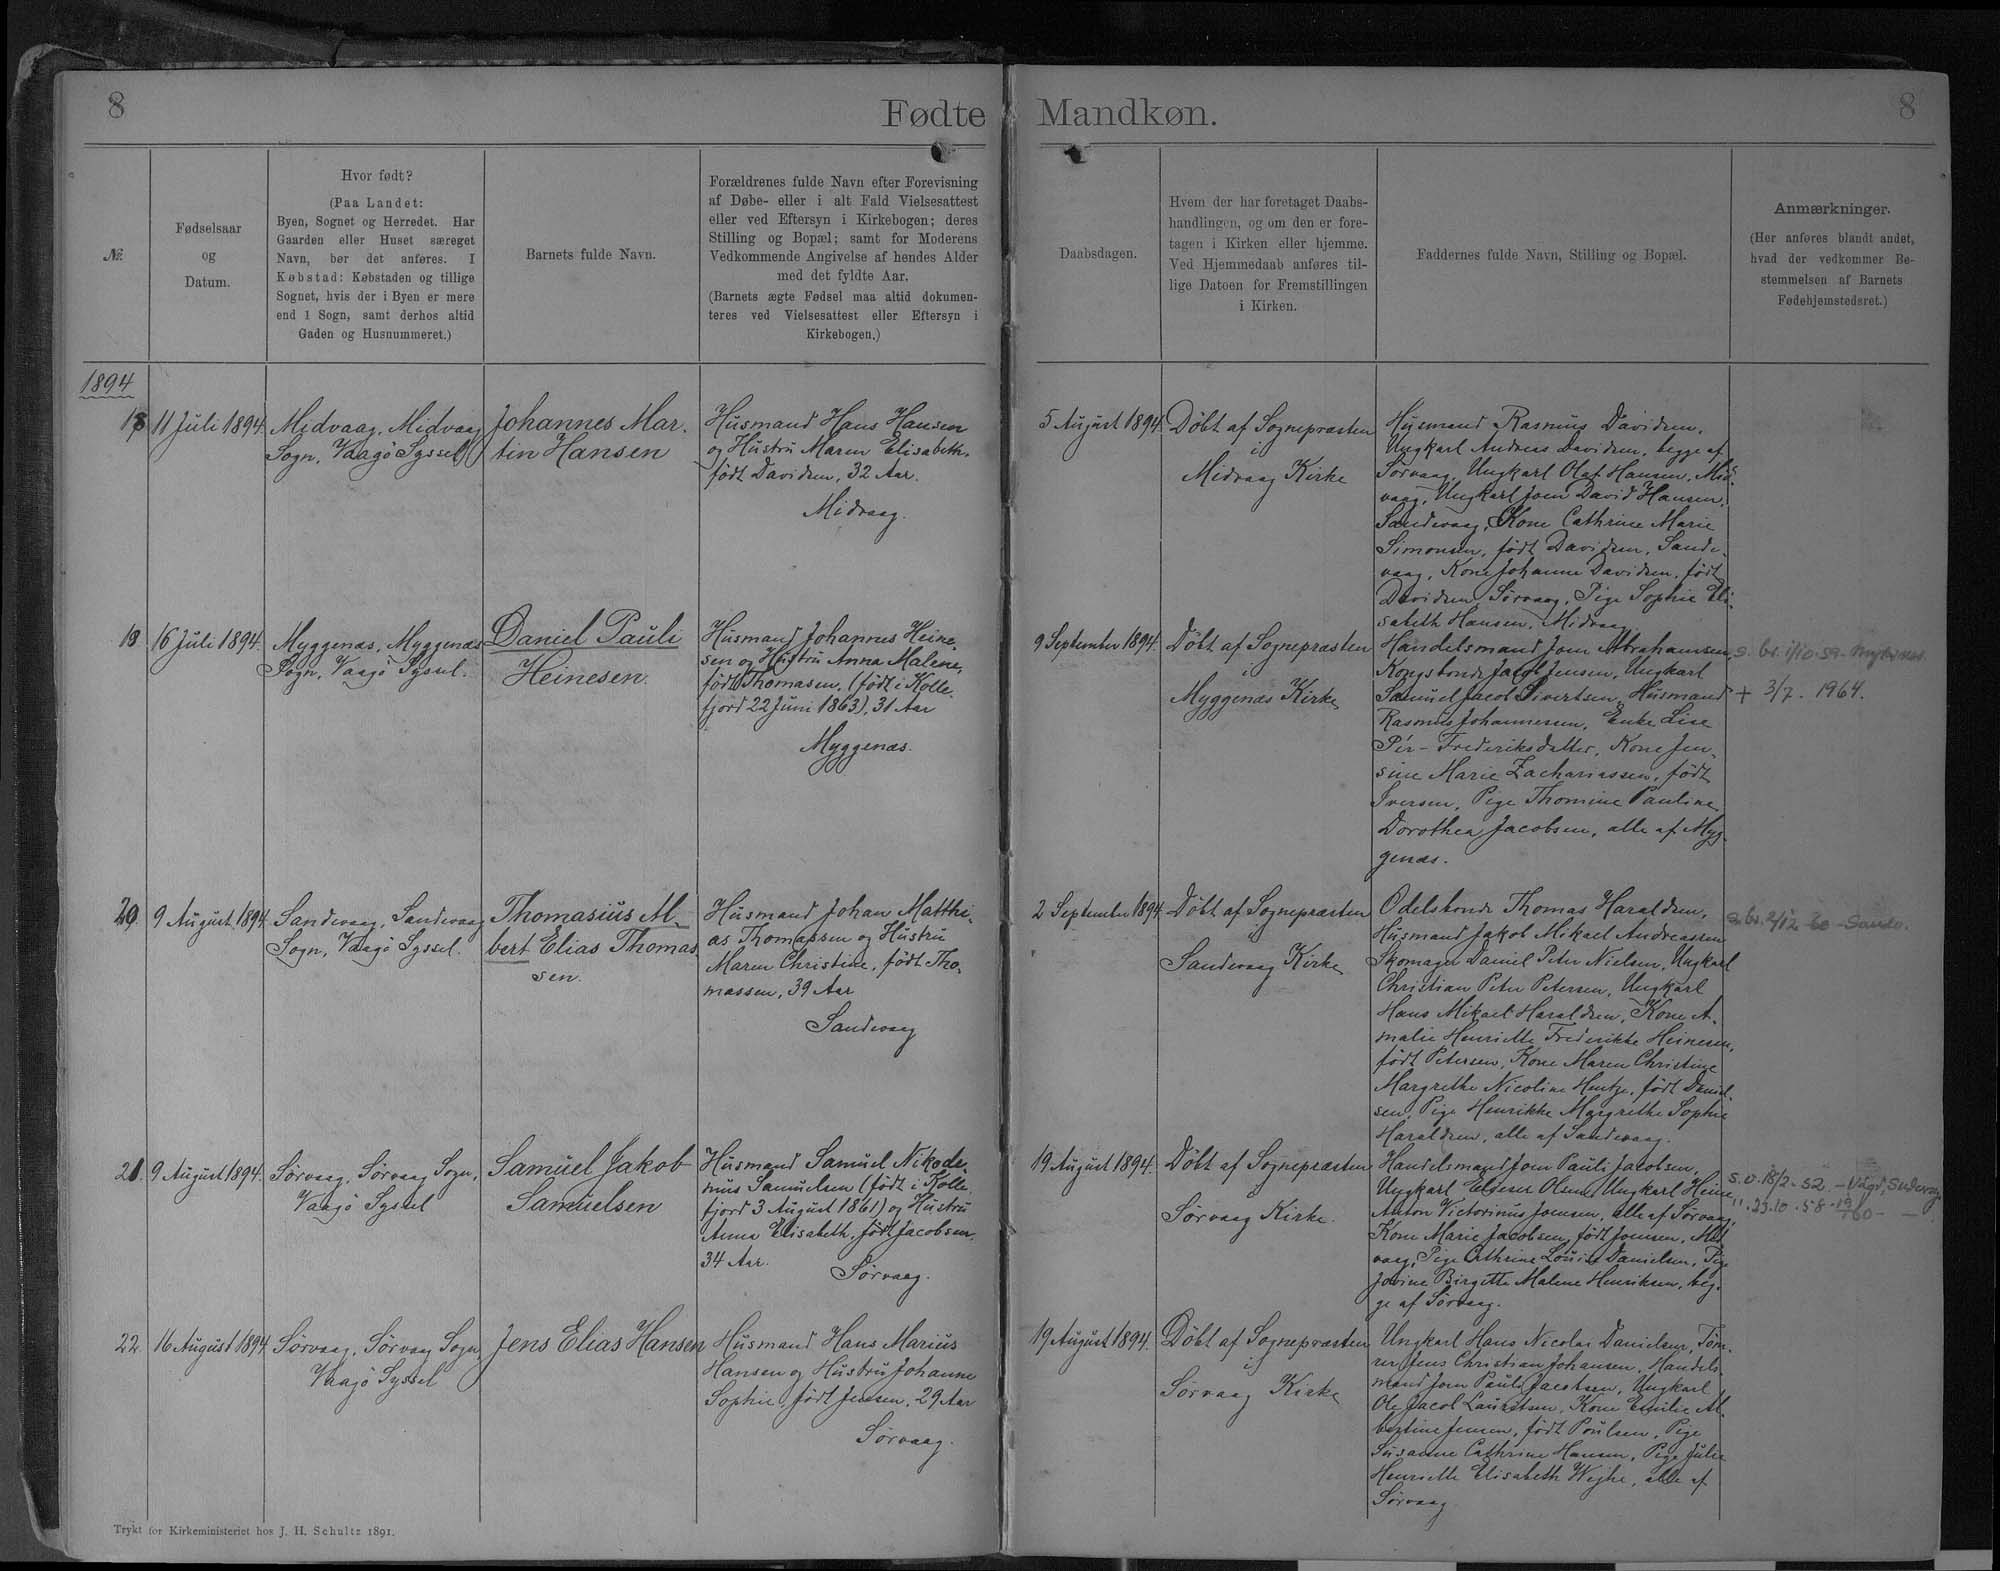 8
Fødte
Mandkøn.
8
№
Fødselsaar
og
Datum.
Hvor født?
(Paa Landet:
Byen, Sognet og Herredet. Har
Gaarden eller Huset særeget
Navn, bør det anføres. I
Købstad: Købstaden og tillige
Sognet, hvis der i Byen er mere
end 1 Sogn, samt derhos altid
Gaden og Husnummeret.)
Barnets fulde Navn.
Forældrenes fulde Navn efter Forevisning
af Døbe- eller i alt Fald Vielsesattest
eller ved Eftersyn i Kirkebogen; deres
Stilling og Bopæl; samt for Moderens
Vedkommende Angivelse af hendes Alder
med det fyldte Aar.
(Barnets ægte Fødsel maa altid dokumen-
teres ved Vielsesattest eller Eftersyn i
Kirkebogen.)
Daabsdagen.
Hvem der har foretaget Daabs-
handlingen, og om den er fore-
tagen i Kirken eller hjemme.
Ved Hjemmedaab anføres til-
lige Datoen for Fremstillingen
i Kirken.
Faddernes fulde Navn, Stilling og Bopæl.
Anmærkninger.
(Her anføres blandt andet,
hvad der vedkommer Be-
stemmelsen af Barnets
Fødehjemstedsret.)
1894
11 Juli 1894.
Midvaag, Midvaag
Sogn, Vaagö Syssel
Johannes Mar-
tin Hansen
Husmand Hans Hansen
og Hustru Maren Elisabeth,
født Davidsen, 32 Aar.
Midvaag.
5 August 1894.
Döbt af Sognepræsten
i
Midvaag Kirke
Husmand Rasmus Davidsen,
Ungkarl Andreas Davidsen, begge af
Sörvaag, Ungkarl Olaf Hansen, Mid-
vaag, Ungkarl Joen David Hansen,
Sandevaag, Kone Cathrine Marie
Simonsen, født Davidsen, Sande-
vaag, Kone Johanne Davidsen, født
Davidsen, Sörvaag, Pige Sophie Eli-
sabeth Hansen, Midvaag.
16 Juli 1894.
Myggenæs, Myggenæs
Sogn, Vaagö Syssel.
Daniel Pauli
Heinesen.
Husmand Johannes Heine-
sen og Hustru Anna Malene,
født Thomasen, (født i Kolle-
fjord 22 Juni 1863), 31 Aar
Myggenæs.
9 September 1894.
Döbt af Sognepræsten
i
Myggenæs Kirke
Handelsmand Joen Abrahamsen,
Kongsbonde Jacob Jensen, Ungkarl
Samuel Jacob Sivertsen, Husmand
Rasmus Johannesen, Enke Lise
Pir- Frederiksdatter, Kone Jen-
sine Marie Zachariassen, født
Iversen, Pige Thomine Pauline
Dorothea Jacobsen, alle af Myg-
genæs.
+ 3/7. 1964.
20
9 August 1894
Sandevaag, Sandevaag
Sogn, Vaagö Syssel.
Thomasius Al-
bert Elias Thomas-
sen.
Husmand Johan Matthi-
as Thomassen og Hustru
Maren Christine, født Tho-
massen, 39 Aar
Sandevaag
2 September 1894.
Döbt af Sognepræsten
i
Sandevaag Kirke
Odelsbonde Thomas Haraldsen,
Husmand Jakob Mikael Andreassen
Skomager Daniel Peter Nielsen, Ungkarl
Christian Peter Petersen, Ungkarl
Hans Mikael Haraldsen, Kone A-
malie Henriette Frederikke Heinesen,
født Petersen, Kone Maren Christine
Margrethe Nicoline Hentze, født Daniel-
sen, Pige Henrikke Margrethe Sophie
Haraldsen, alle af Sandevaag.
21.
9 August 1894.
Sörvaag, Sörvaag Sogn,
Vaagö Syssel
Samuel Jakob
Samuelsen
Husmand Samuel Nikode-
mus Samuelsen (født i Kolle-
fjord 3 August 1861) og Hustru
Anna Elisabeth, født Jacobsen,
34 Aar.
Sörvaag.
19 August 1894.
Döbt af Sognepræsten
i
Sörvaag Kirke.
Handelsmand Joen Pauli Jacobsen,
Ungkarl Olsen, Ungkarl Heine
Anton Victorinus Joensen, alle af Sörvaag,
Kone Marie Jacobsen, født Joensen, Mid-
vaag, Pige Cathrine Louise Danielsen, Pige
Jovine Birgitte Malene Henriksen, beg-
ge af Sörvaag.
s.v. 18/2-52.
22
16 August 1894
Sörvaag, Sörvaag Sogn,
Vaagö Syssel
Jens Elias Hansen
Husmand Hans Marius
Hansen og Hustru Johanne
Sophie, født Jensen, 29 Aar
Sörvaag.
19 August 1894.
Döbt af Sognepræsten
i
Sörvaag Kirke
Ungkarl Hans Nicolai Danielsen, Töm-
rer Jens Christian Johansen, Handels-
mand Joen Pauli Jacobsen, Ungkarl
Ole Jacob Lauritsen, Kone Emilie Al-
bertine Jensen, født Poulsen, Pige
Susanne Cathrine Hansen, Pige Julie
Henriette Elisabeth Wejhe, alle af
Sörvaag
Trykt for Kirkeministeriet hos J. H. Schultz 1891.